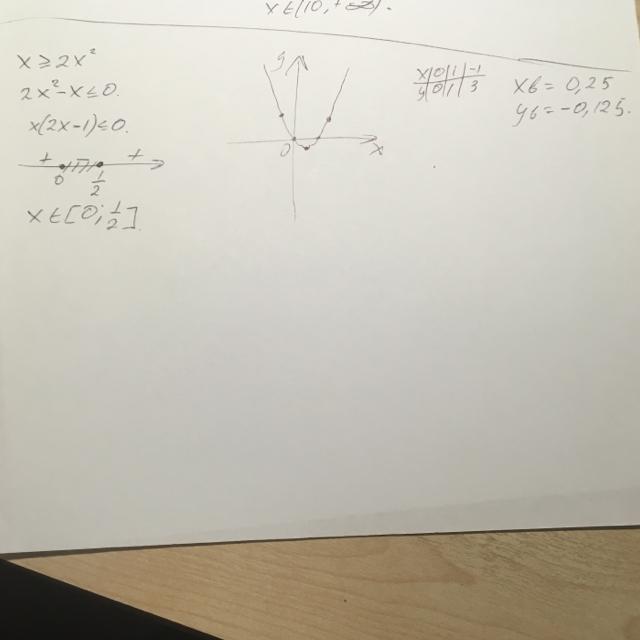 x ≥ 2x²
2x² - x ≤ 0.
x(2x-1) ≤ 0.
+ +
0 1/2
x ∈ [0; 1/2].
y
0 x
x | 0 | 1 | -1
y | 0 | 1 | 3
xв = 0,25
yв = -0,125.